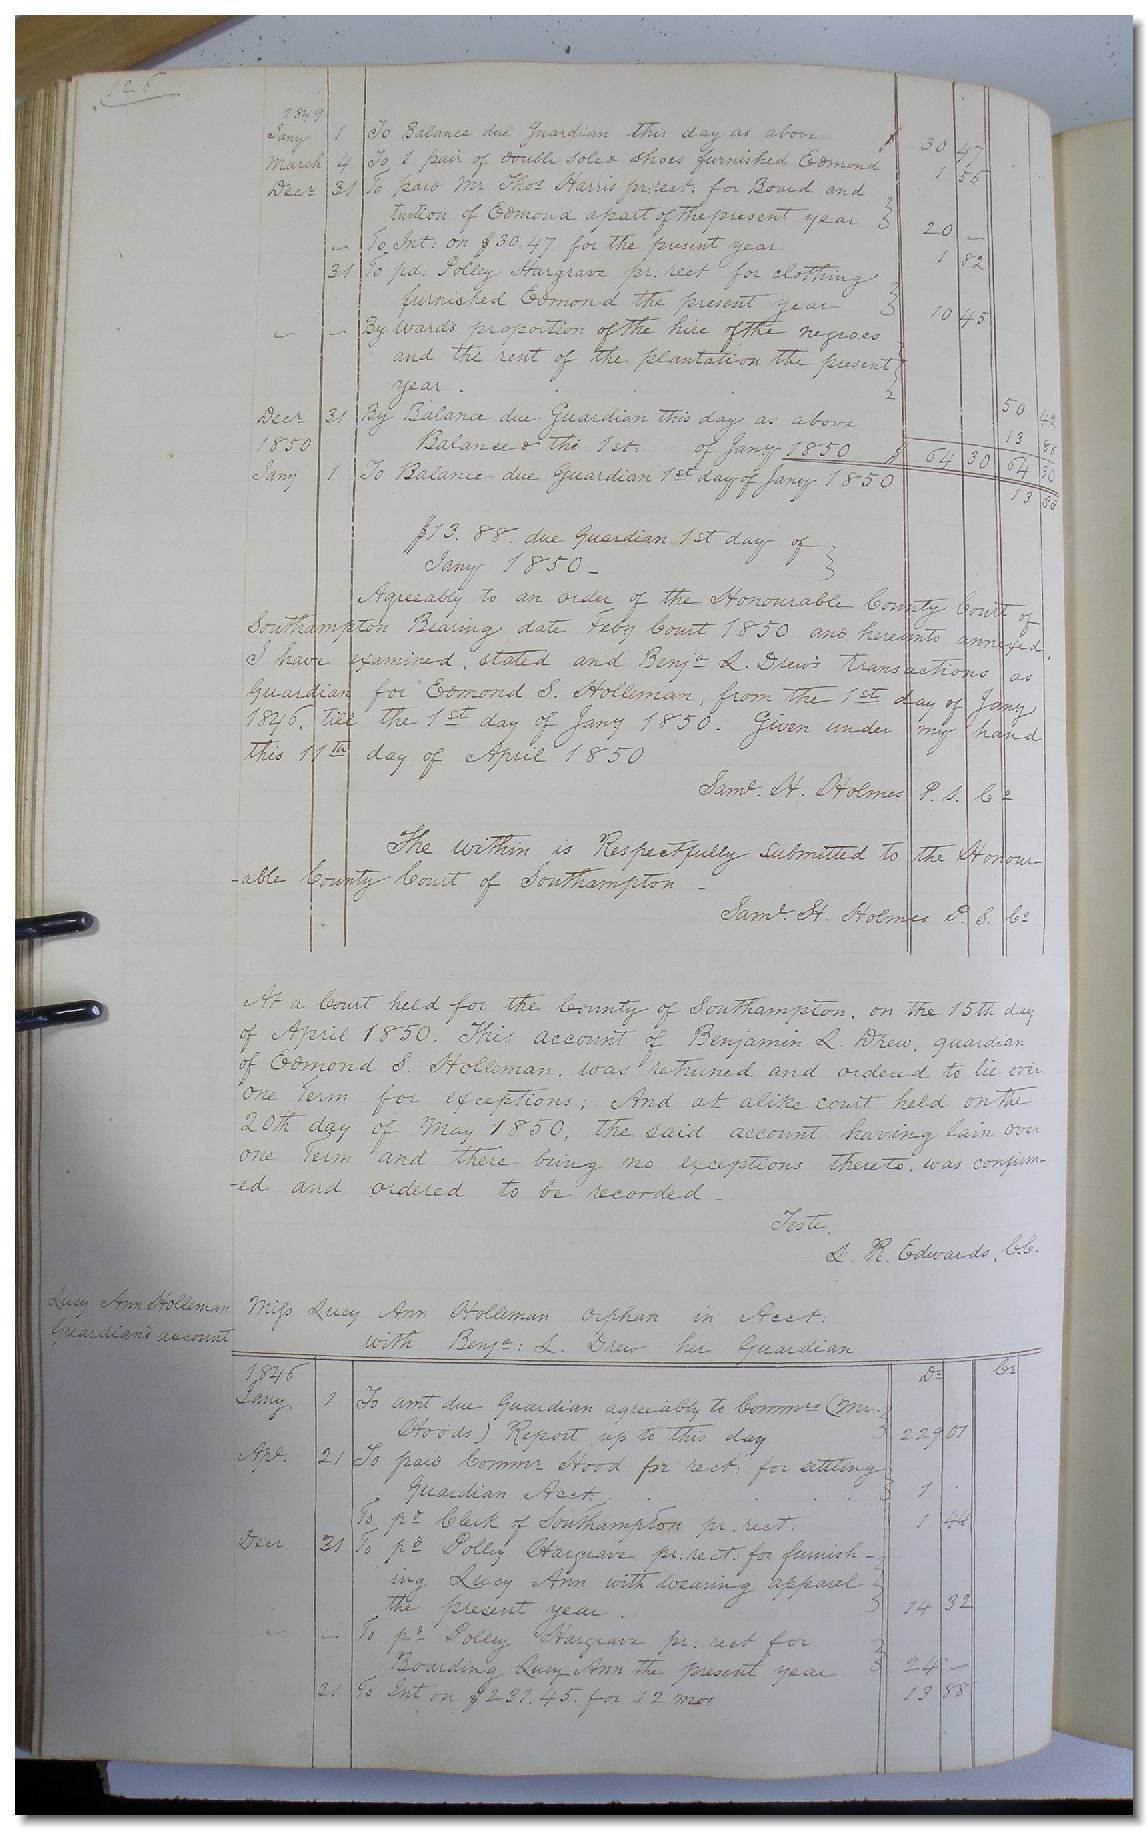 126
1849
Jany 1 To Balance due Guardian this day as above $ 30 47
March 4 To 1 pair of double soled shoes furnished Edmond 1 56
Decr 31 To paid Mr. Thos Harris pr. rect. for Board and
tuition of Edmond a part of the present year 20 –
– To Int: on $30.47. for the present year 1 82
31 To pd. Polley Hargrave pr. rect for clothing
furnished Edmond the present year 10 45
– – By wards proportion of the hire of the negroes
and the rent of the plantation the present
year . 50 42
Decr 31 By Balance due Guardian this day as above 13 88
1850 Balanced the 1st. of Jany 1850 $ 64 30 64 30
Jany 1 To Balance due Guardian 1st day of Jany 1850 13 88
$13. 88. due Guardian 1st day of
Jany 1850 –
Agreeably to an order of the Honourable County Court of
Southampton Bearing date Feby Court 1850 and hereunto annexed.
I have examined, stated and Benja L. Drew's transactions as
Guardian for Edmond S. Holleman, from the 1st day of Jany
1846, till the 1st day of Jany 1850. Given under my hand
this 11th day of April 1850
Saml. H. Holmes P. S. Co
The within is Respectfully submitted to the Honour-
-able County Court of Southampton –
Saml. H. Holmes P. S. Co
At a Court held for the County of Southampton, on the 15th day
of April 1850. This account of Benjamin L. Drew, guardian
of Edmond S. Holleman, was returned and ordered to lie over
one Term for exceptions; And at alike court held on the
20th day of May 1850, the said account having lain over
one Term and there being no exceptions thereto, was confirm-
-ed and ordered to be recorded –
Teste,
L. R. Edwards, C.C.
Lucy Ann Holleman
Guardian's account
Miss Lucy Ann Holleman orphan in Acct:
with Benja: L. Drew her Guardian
1846 Dr Cr
Jany 1 To amt due Guardian agreeably to Commrs (Mr.
Hoods) Report up to this day 229 01
Apl. 21 To paid Commr Hood for rect: for settling
Guardian Acct. . . . 1 .
To pd Clerk of Southampton pr. rect: 1 44
Decr 31 To pd Polley Hargrave pr: rect: for furnish-
ing Lucy Ann with wearing apparel
the present year . 14 32
– – To pd Polley Hargrave pr: rect for
Boarding Lucy Ann the present year 24 –
31 To Int on $231.45. for 12 mos 13 88